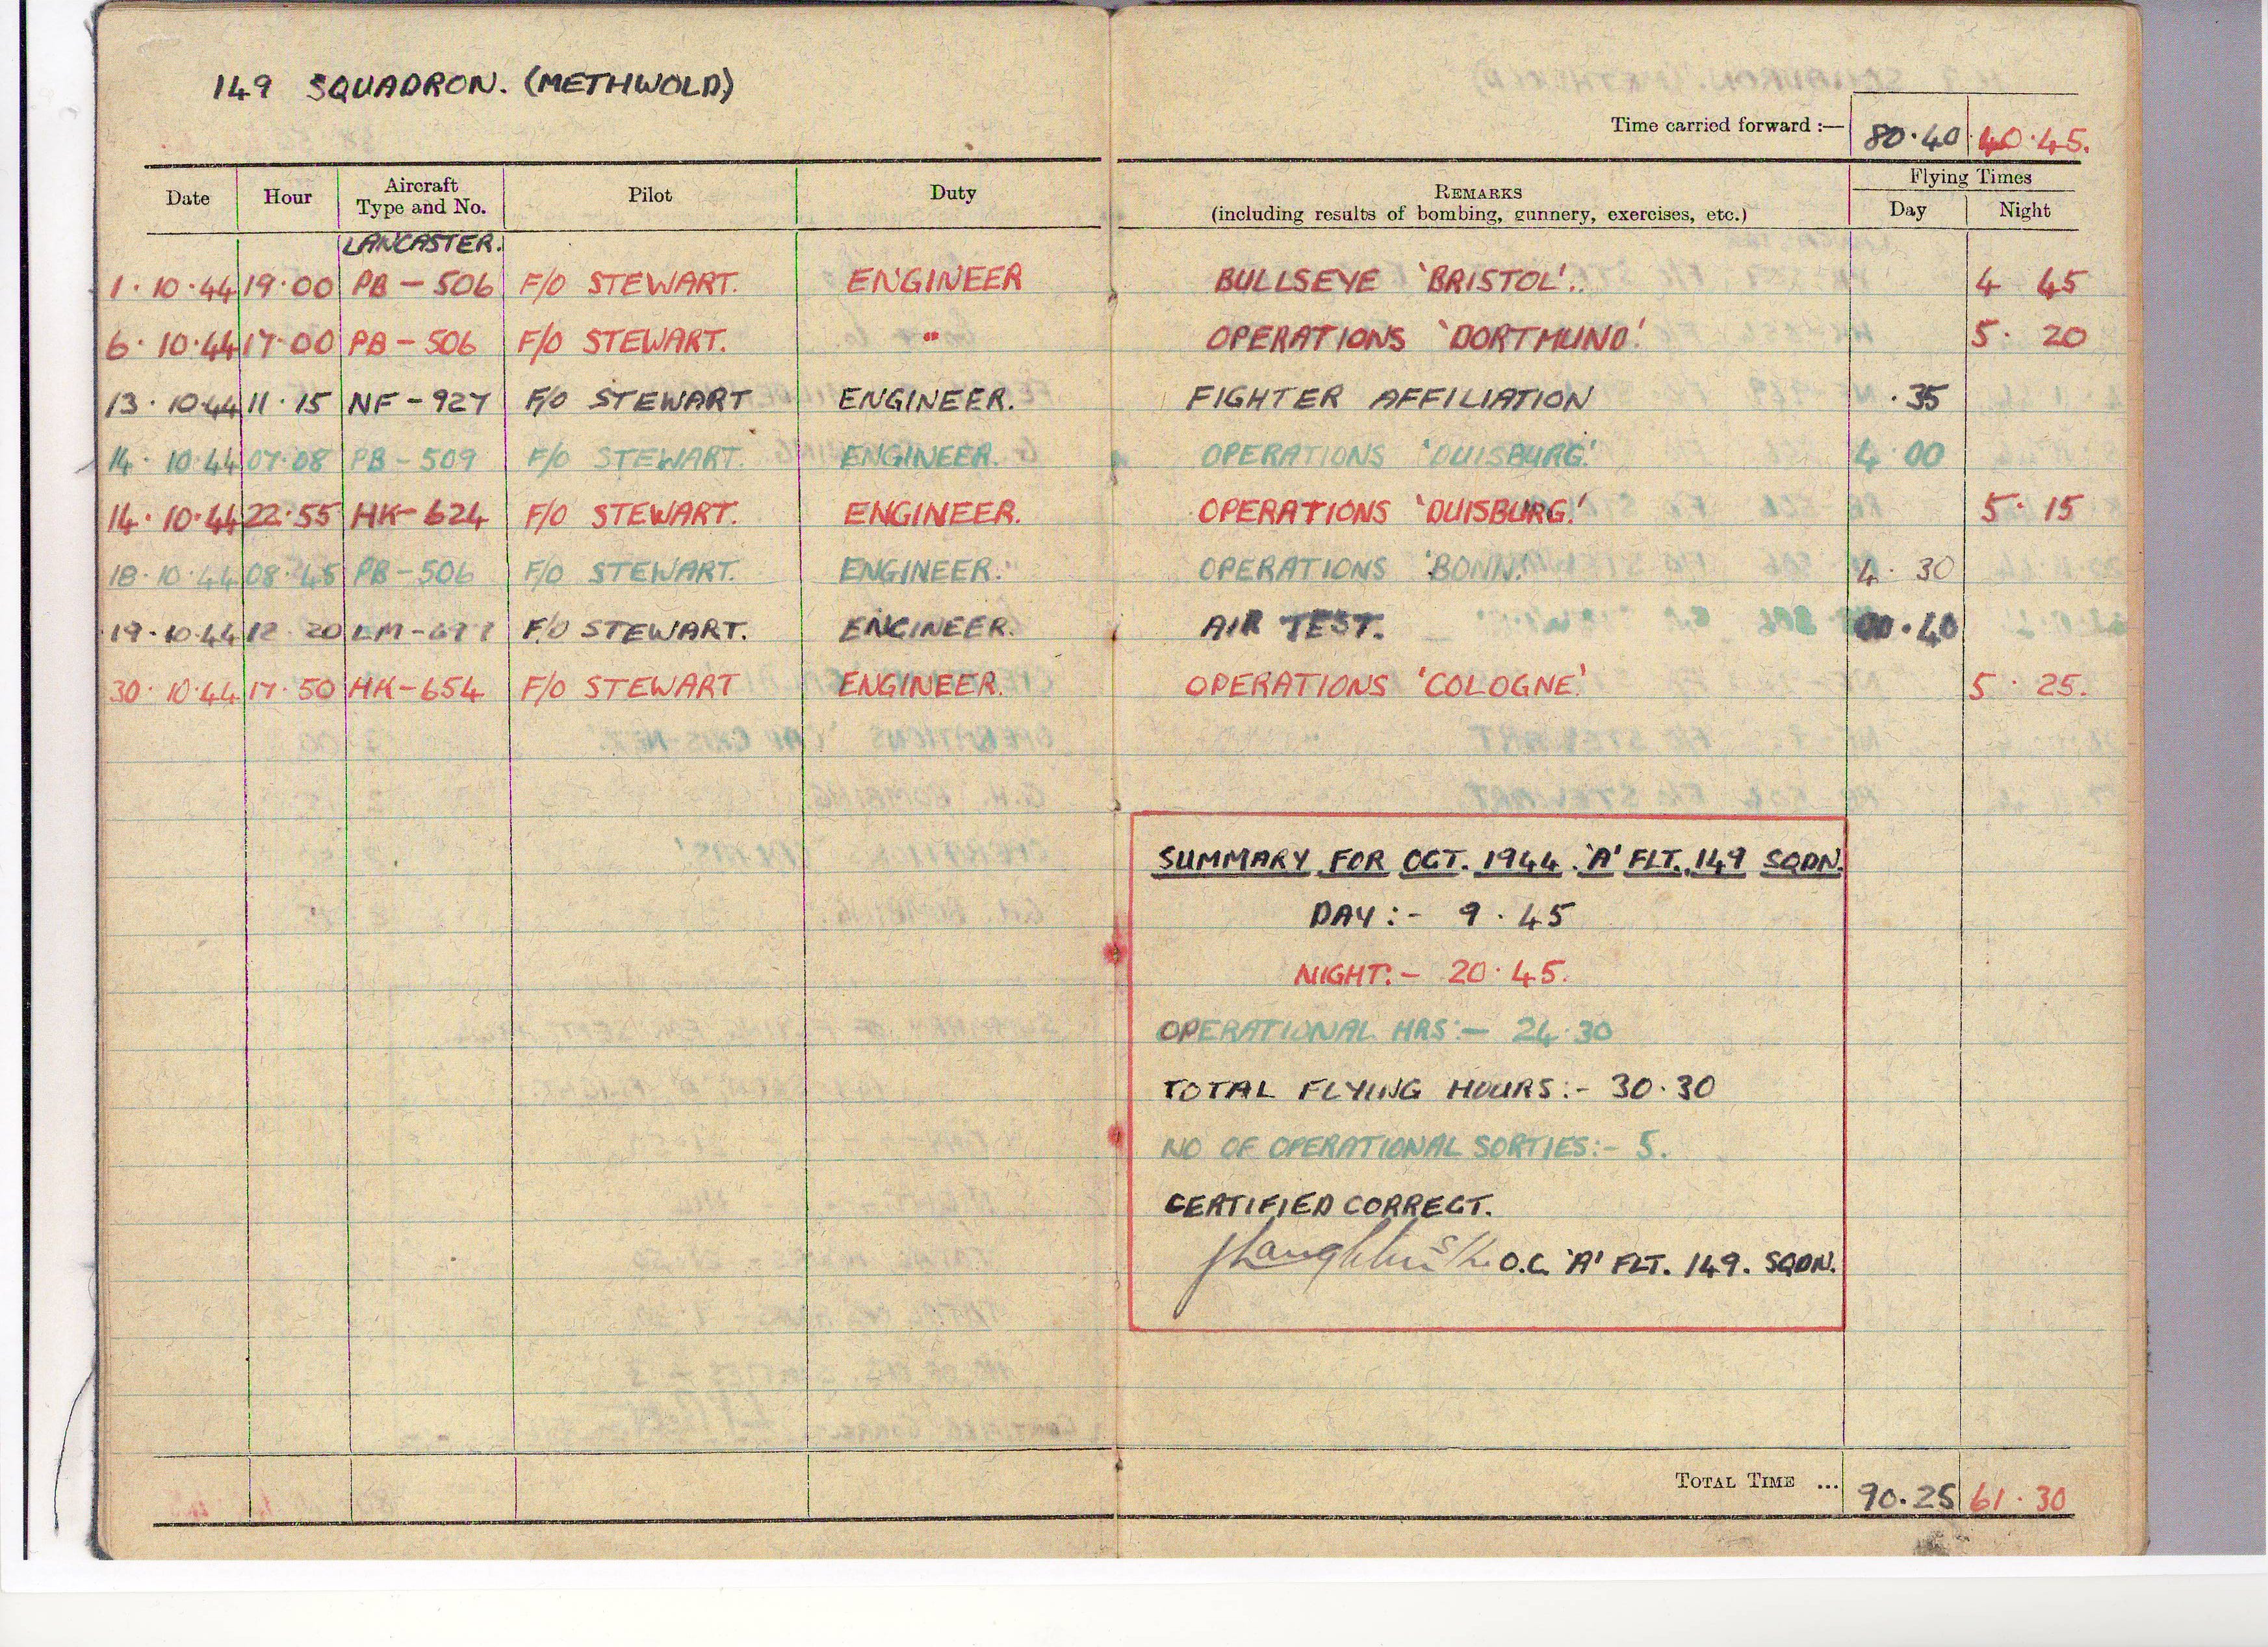 149 SQUADRON. (METHWOLD)
Time carried forward :— 80·40 40·45.
Date Hour Aircraft Type and No. Pilot Duty REMARKS (including results of bombing, gunnery, exercises, etc.) Flying Times Day Night
LANCASTER.
1·10·44 19·00 PB-506 F/O STEWART. ENGINEER BULLSEYE 'BRISTOL'. 4 45
6·10·44 17·00 PB-506 F/O STEWART. " OPERATIONS 'DORTMUND'. 5· 20
13·10·44 11·15 NF-927 F/O STEWART ENGINEER. FIGHTER AFFILIATION ·35
14·10·44 07·08 PB-509 F/O STEWART. ENGINEER. OPERATIONS 'DUISBURG.' 4·00
14·10·44 22·55 HK-624 F/O STEWART. ENGINEER. OPERATIONS 'DUISBURG.' 5·15
18·10·44 08·45 PB-506 F/O STEWART. ENGINEER. OPERATIONS 'BONN.' 4·30
19·10·44 12·20 F/O STEWART. ENGINEER. AIR TEST. 00·40
30·10·44 17·50 HK-654 F/O STEWART ENGINEER. OPERATIONS 'COLOGNE' 5·25.
SUMMARY FOR OCT. 1944 'A' FLT. 149 SQDN.
DAY:- 9·45
NIGHT:- 20·45.
OPERATIONAL HRS:- 24·30
TOTAL FLYING HOURS:- 30·30
NO OF OPERATIONAL SORTIES:- 5.
CERTIFIED CORRECT.
O.C. 'A' FLT. 149. SQDN.
TOTAL TIME ... 90·25 61·30